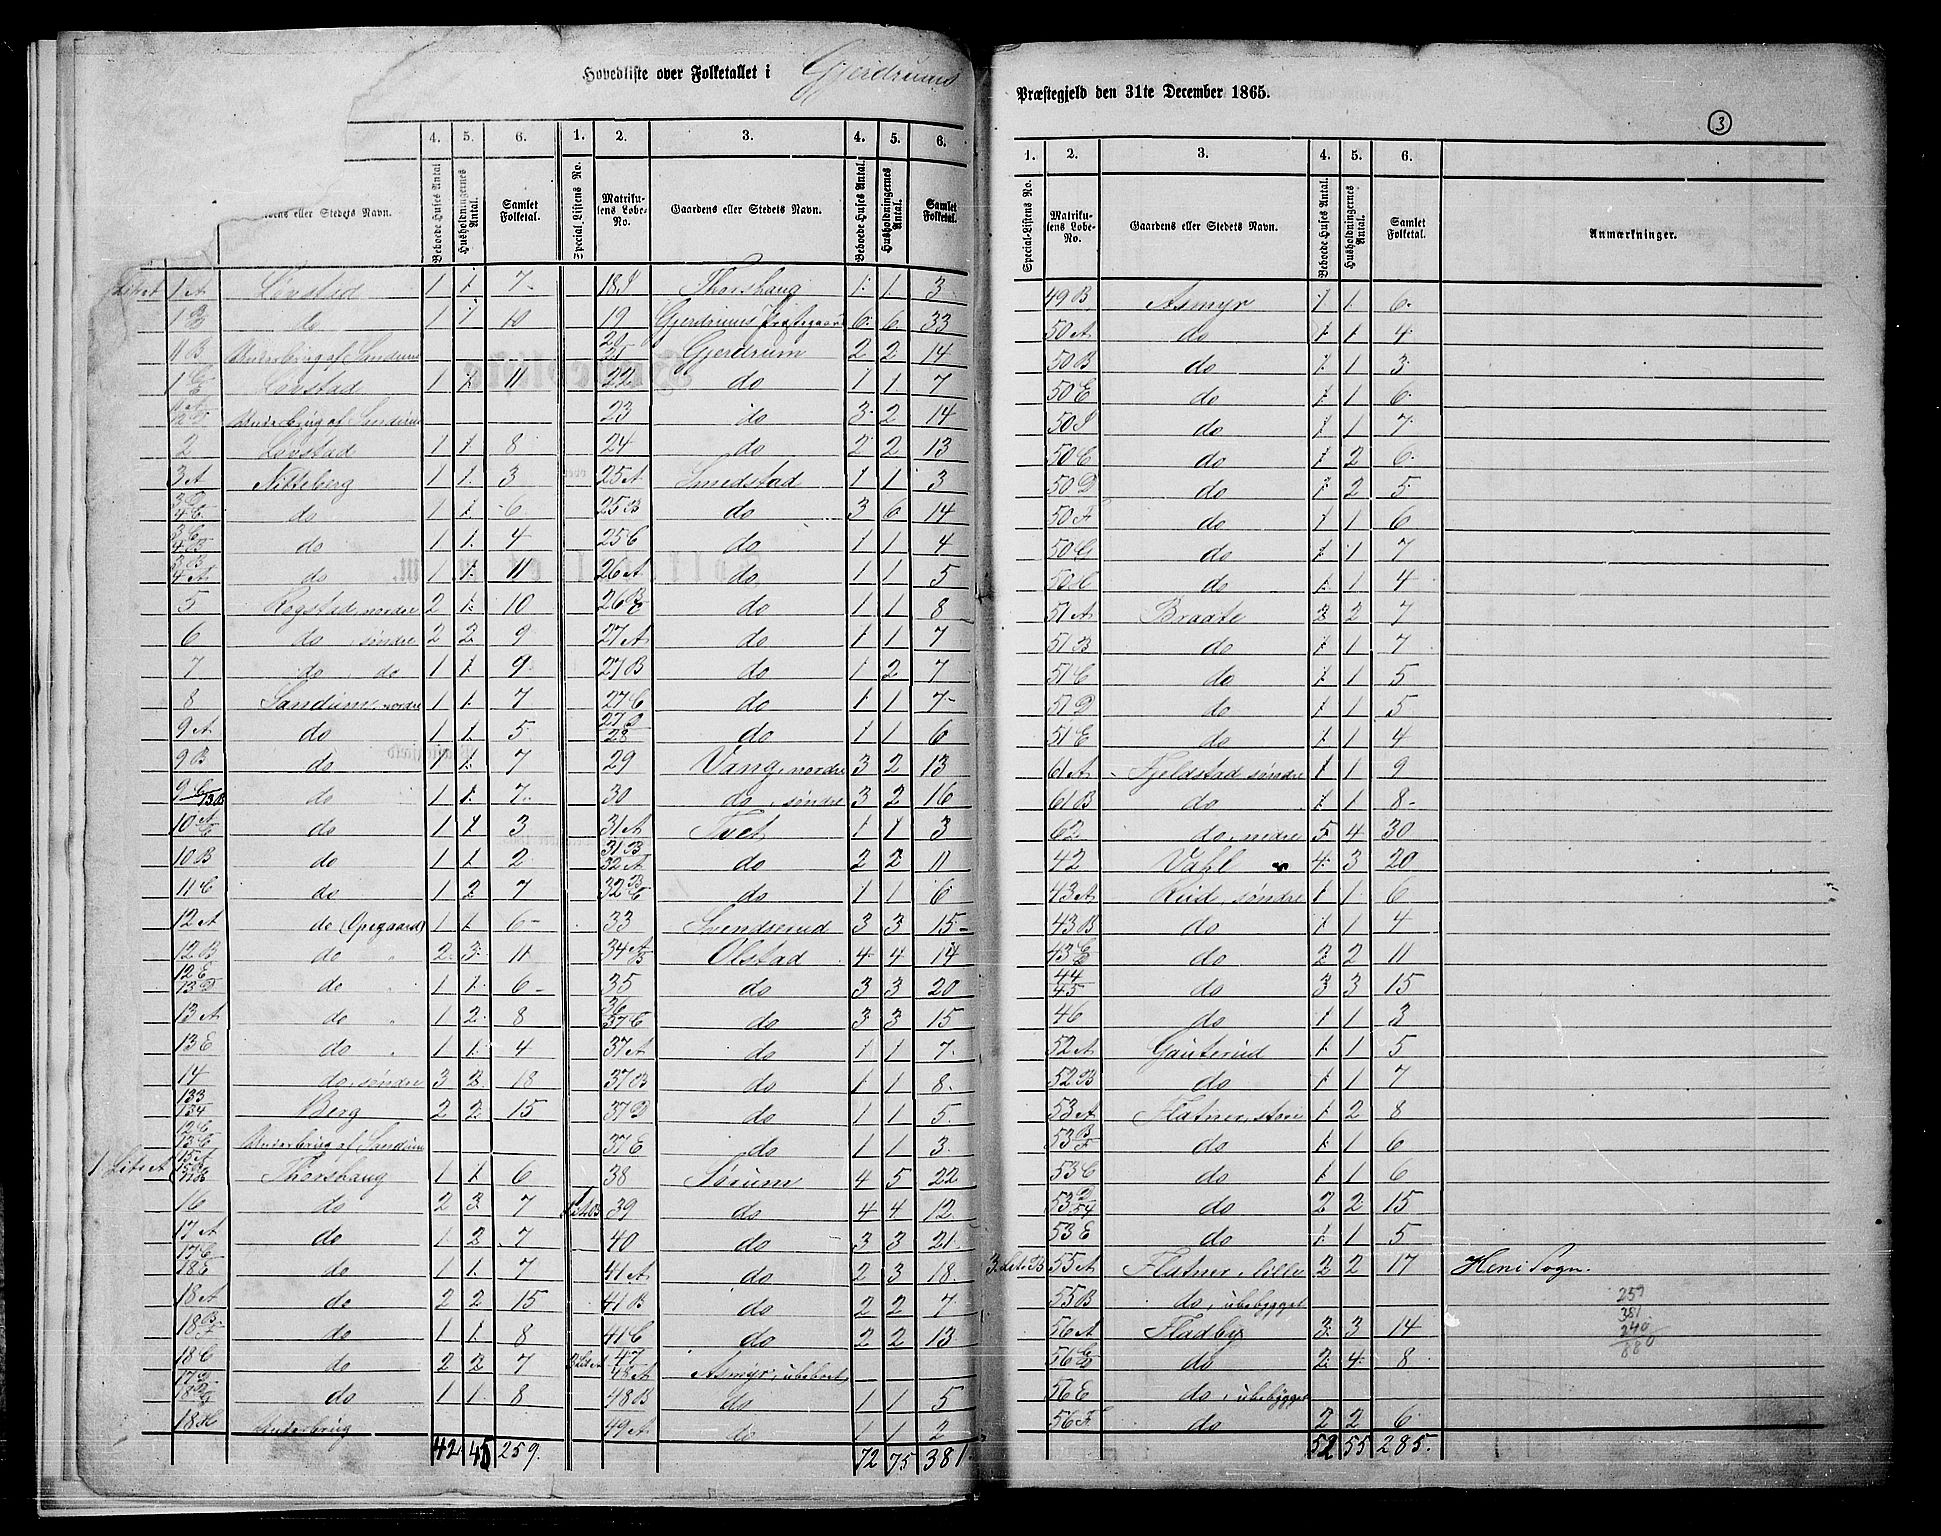 Hovedliste over Folketallet i Gjerdrums
4. 5. 6. 1. 2. 3. 4. 5. 6.
Gaardens eller Stedets Navn. Beboede Huses Antal. Husholdningernes Antal. Samlet Folketal. Special-Listens No. Matrikulens Løbe-No. Gaardens eller Stedets Navn. Beboede Huses Antal. Husholdningernes Antal. Samlet Folketal.
1 A Løvstad 1 1 7 18 I Thorshaug 1 1 3
1 B do 1 1 10 19 Gjerdrums Præstegaard 6 6 33
11 B Underbrug af Sandum 20 21 Gjerdrum 2 2 14
1 C Løvstad 1 1 11 22 do 1 1 7
Underbrug af Sandum 23 do 3 2 14
2 Løvstad 1 1 8 24 do 2 2 13
3 A Nitteberg 1 1 3 25 A Smedstad 1 1 3
3 D 4 C do 1 1 6 25 B do 3 6 14
3 C 4 B do 1 1 4 25 C do 1 1 4
3 B 4 A do 1 1 11 26 A do 1 1 5
5 Rogstad, nordre 2 1 10 26 B do 1 1 8
6 do søndre 2 2 9 27 A do 1 1 7
7 do do 1 1 9 27 B do 1 2 7
8 Sandum, nordre 1 1 7 27 C do 1 1 7
9 A do 1 1 5 27 D 28 do 1 1 6
9 B do 1 1 7 29 Vang, nordre 3 2 13
9 C 13 B do 1 1 7 30 do, søndre 3 2 16
10 A do 1 1 3 31 A Tvet 1 1 3
10 B do 1 1 2 31 B 32 A do 2 2 11
11 C do 1 2 7 32 B do 1 1 6
12 A do (Opegaard) 1 1 6 33 Svendserud 3 3 15
12 B do 2 3 11 34 A B Olstad 4 4 14
12 E 13 D do 1 1 6 35 do 3 3 20
13 A do 1 2 8 36 37 C do 3 3 15
13 E do 1 1 4 37 A do 1 1 7
14 do, søndre 3 2 18 37 B do 1 1 8
133 134 Berg 2 2 15 37 D do 1 1 5
12 C 13 C Underbrug af Sandum 37 E do 1 1 3
1 Litr A 15 A Thorshaug 1 1 6 38 Sørum 4 5 22
16 do 2 3 7 39 do 4 4 12
17 A do 1 2 7 40 do 3 3 21
17 C 18 E do 1 1 7 41 A do 2 3 18
18 A do 2 2 15 41 B do 2 2 7
18 B F do 1 1 8 41 C do 2 2 13
18 C do 2 2 7 47 48 A Asmyr, ubeboet
17 D 18 D do 1 1 8 48 B do 1 1 5
18 H Underbrug 49 A do 1 1 2
42 45 259. 72 75 381
Præstegjeld den 31te December 1865.
3
1. 2. 3. 4. 5. 6.
Special-Listens No. Matrikulens Løbe-No. Gaardens eller Stedets Navn. Beboede Huses Antal. Husholdningernes Antal. Samlet Folketal. Anmærkninger.
49 B Asmyr 1 1 6
50 A do 1 1 4
50 B do 1 1 3
50 E do 1 1 6
50 I do 1 1 7
50 C do 1 2 6
50 D do 1 2 5
50 F do 1 1 6
50 G do 1 1 7
50 H do 1 1 4
51 A Braate 2 2 7
51 B do 1 1 7
51 C do 1 1 5
51 D do 1 1 5
51 E do 1 1 4
61 A Fjeldstad søndre 1 1 9
61 B do 1 1 8
62 do, nedre 5 4 30
42 Vahl 4 3 20
43 A Rud, søndre 1 1 6
43 B do 1 1 4
43 C do 2 2 11
44 45 do 3 3 15
46 do 1 1 3
52 A Gauterud 1 1 5
52 B do 1 1 7
53 A Flatner, store 1 2 8
53 B F do 1 1 6
53 C do 1 1 6
53 D 54 do 2 2 15
53 E do 1 1 5
3. Litr. B 55 A Flatner, lille 2 2 17 Heni Sogn.
55 B do, ubebygget
56 A Fladby 3 3 14
56 C D do 2 4 8
56 E do, ubebygget
56 F do 2 2 6
52 55 285.
259
381
240
880